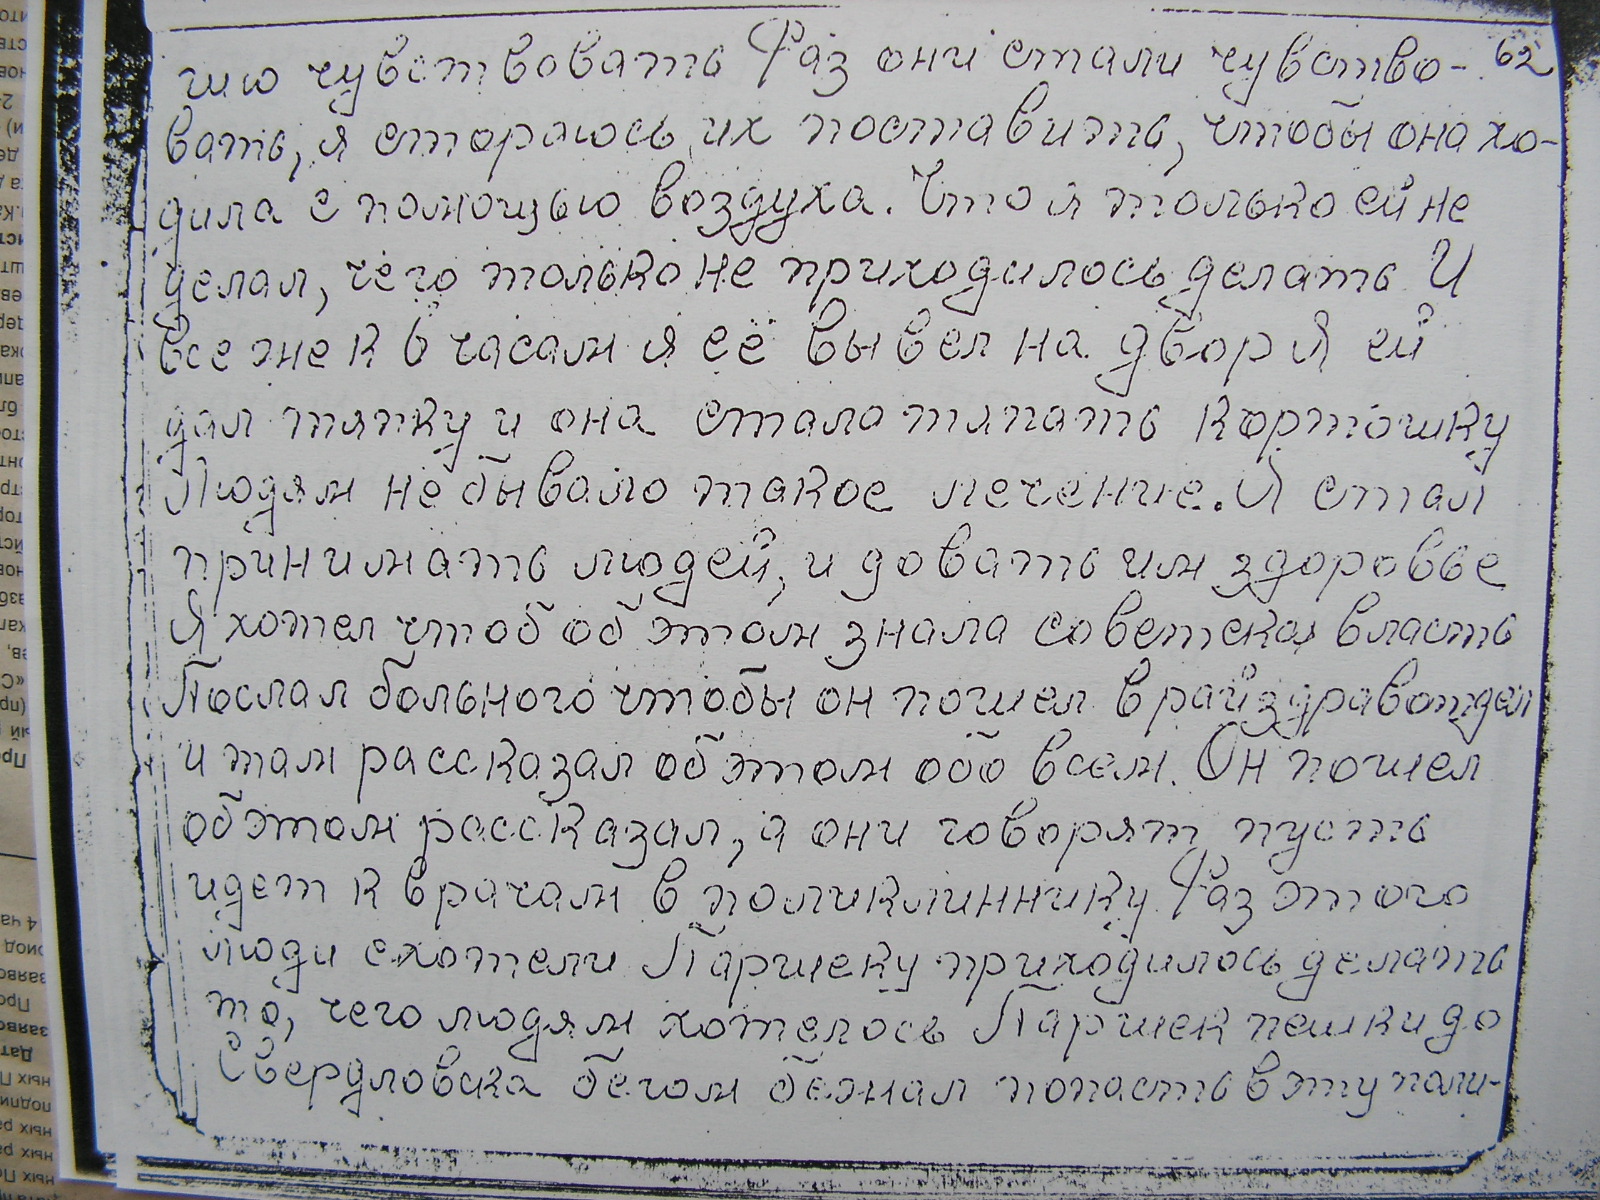 62
шю чувствовать Раз они стали чувство-
вать, я стораюсь их поставить, чтобы она хо-
дила с помощью воздуха. Что я только ей не
делал, чего только не приходилось делать И
все же к 6 часам я её вывел на двор Я ей
дал тяпку и она стала тяпать кортошку
Людям не бывало такое лечение. Я стал
принимать людей, и довать им здоровье
Я хотел чтоб об этом знала советская власть
Послал больного чтобы он пошел в райздравотдел
и там рассказал об этом обо всем. Он пошел
об этом россказал, а они говорят пусть
идет к врачам в поликлиннику Раз этого
люди схотели Паршеку приходилось делать
то, чего людям хотелось Паршек пешки до
Свердловска бегом бежал попасть в эту поли-